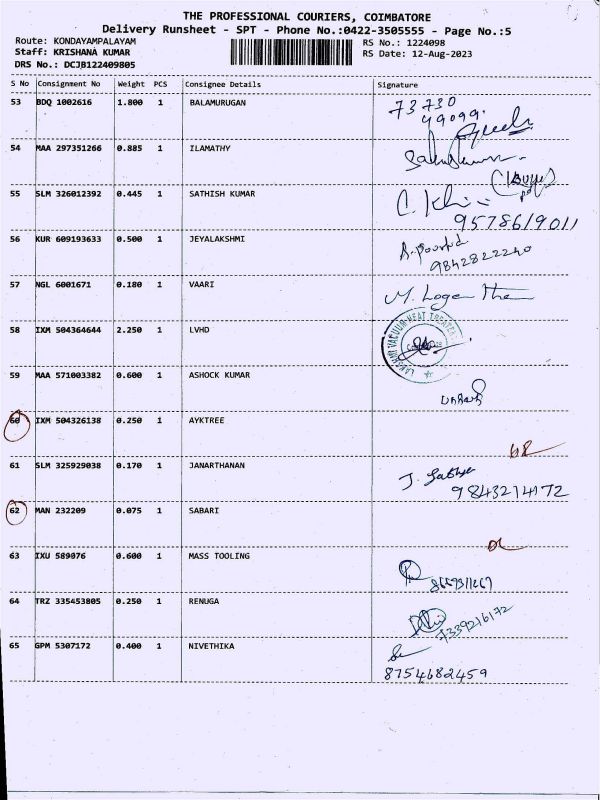 THE PROFESSIONAL COURIERS, COIMBATORE
Delivery Runsheet - SPT - Phone No.:0422-3505555 - Page No.:5
Route: KONDAYAMPALAYAM RS No.: 1224098
Staff: KRISHANA KUMAR RS Date: 12-Aug-2023
DRS No.: DCJB122409805
S No Consignment No Weight PCS Consignee Details Signature
53 BDQ 1002616 1.800 1 BALAMURUGAN 73730
49099
54 MAA 297351266 0.885 1 ILAMATHY
55 SLM 326012392 0.445 1 SATHISH KUMAR
9578619011
56 KUR 609193633 0.500 1 JEYALAKSHMI
9842822240
57 NGL 6001671 0.180 1 VAARI M. Logan
58 IXM 504364644 2.250 1 LVHD
LAKSHMI VACUUM HEAT TREATERS
59 MAA 571003382 0.600 1 ASHOCK KUMAR
60 IXM 504326138 0.250 1 AYKTREE
61 SLM 325929038 0.170 1 JANARTHANAN J. Sathya
9843214172
62 MAN 232209 0.075 1 SABARI
63 IXU 589076 0.600 1 MASS TOOLING
64 TRZ 335453805 0.250 1 RENUGA
7339216172
65 GPM 5307172 0.400 1 NIVETHIKA
8754682459